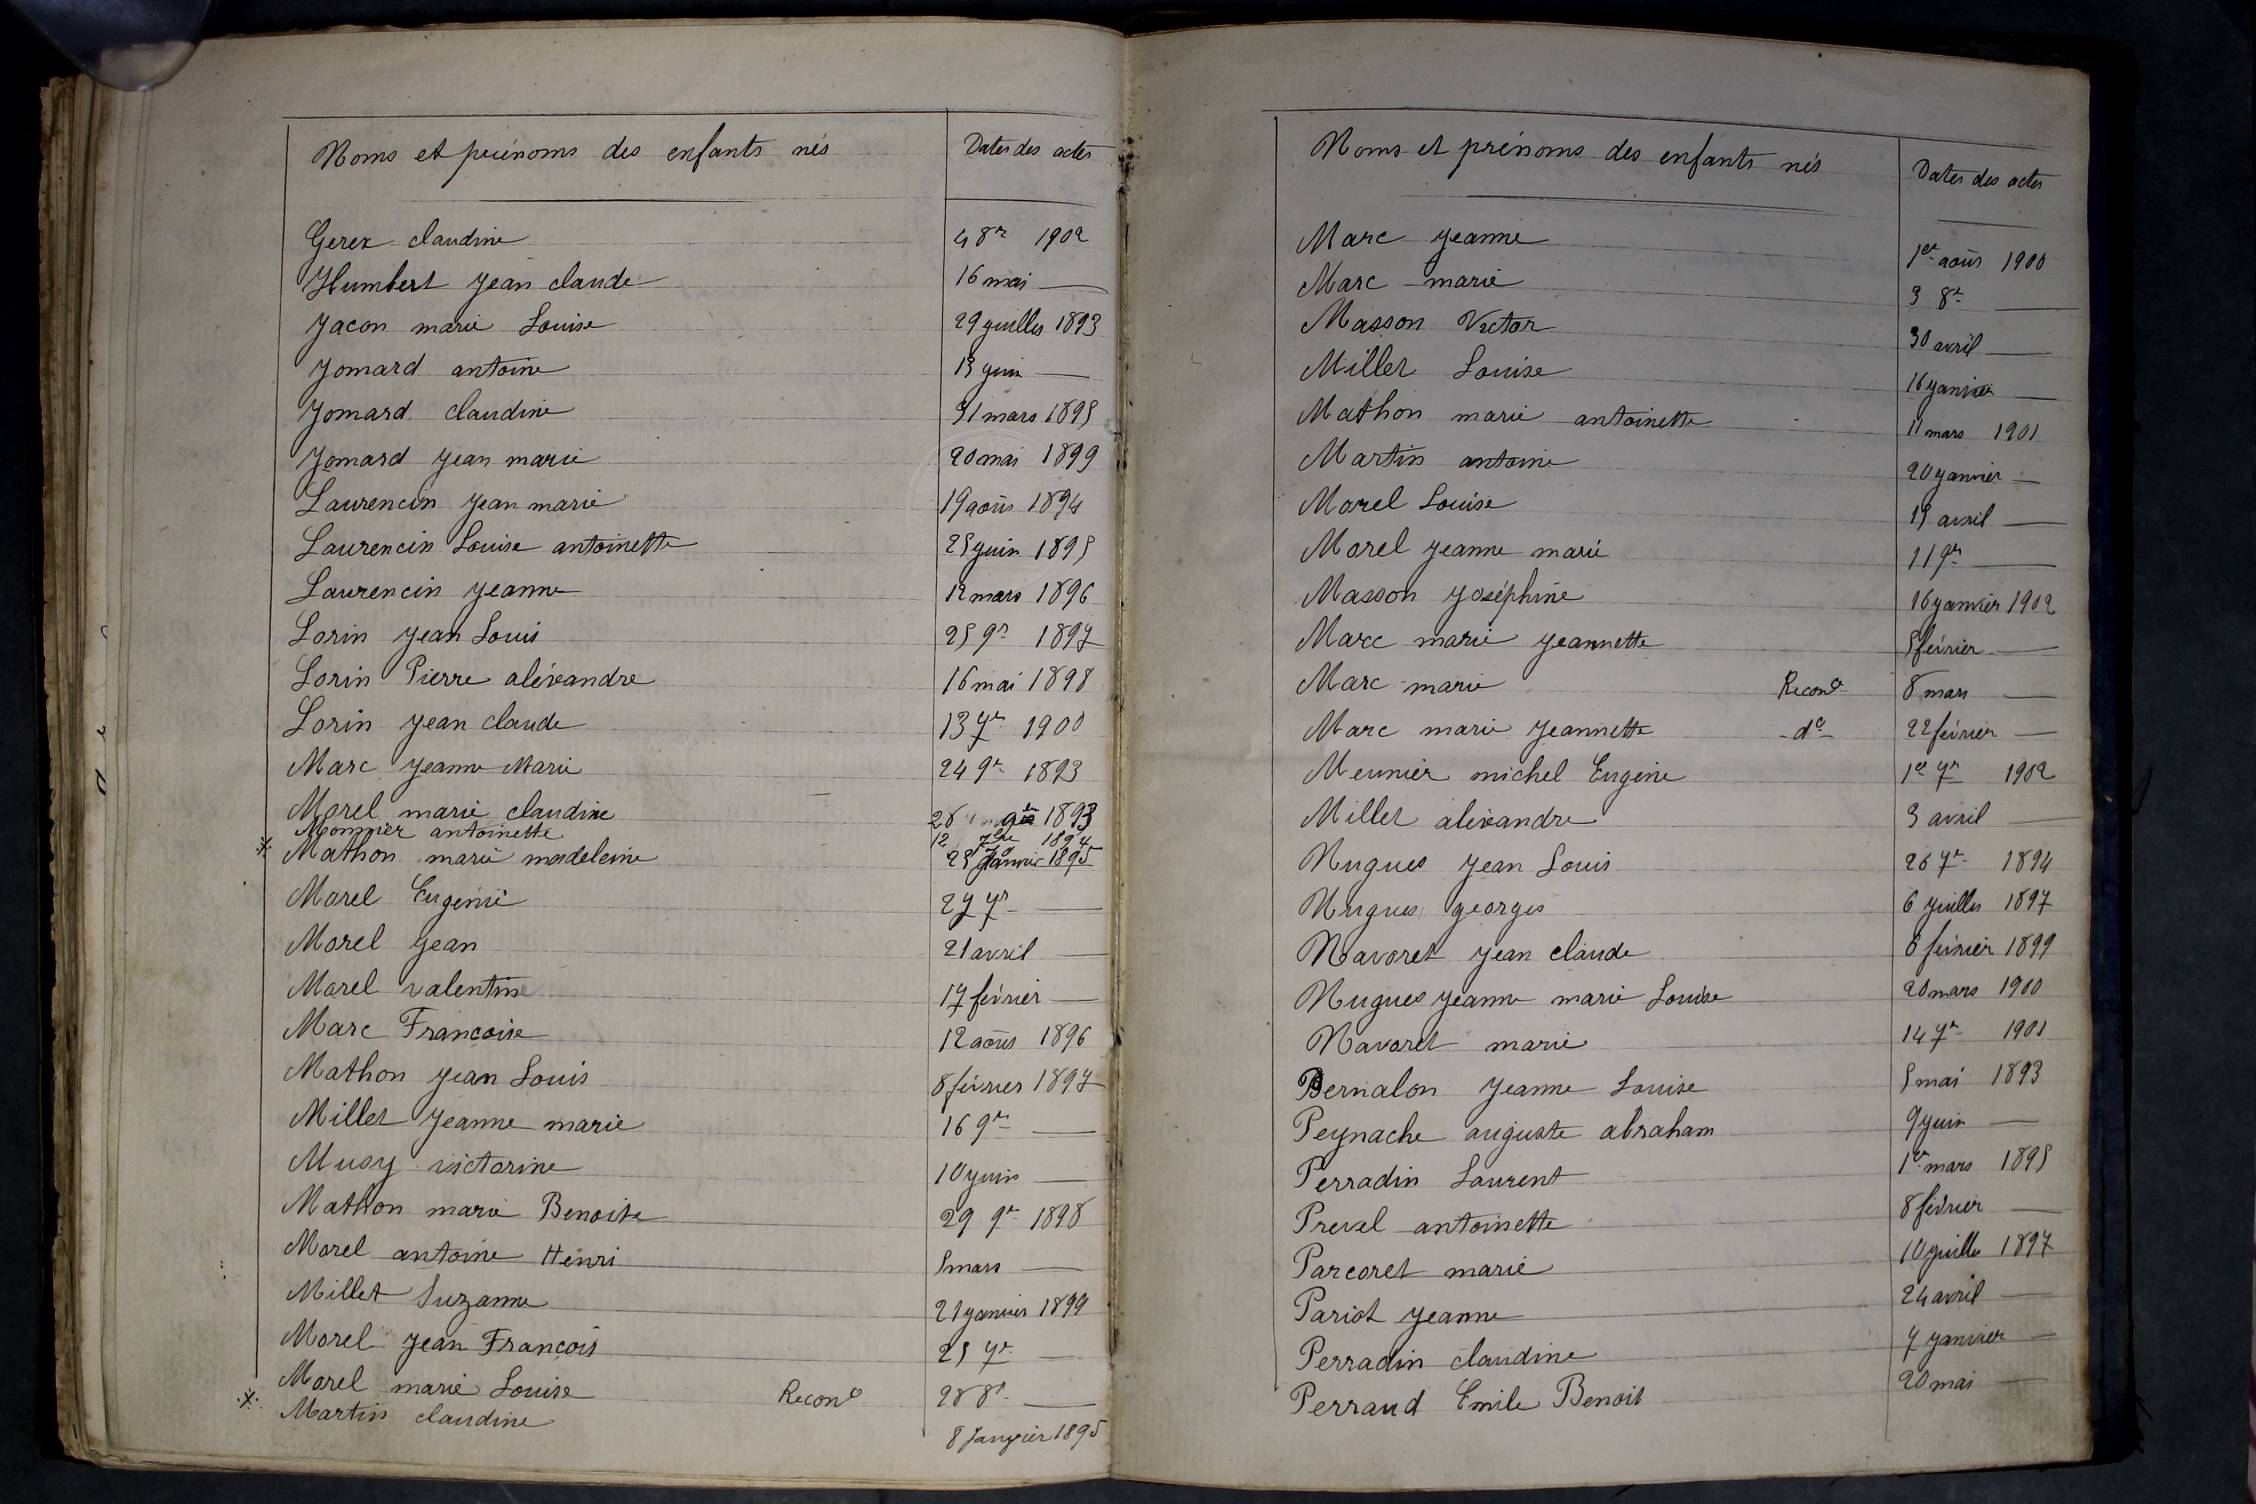 Noms et prénoms des enfants nés Dates des actes
Gerex claudine 4 8re 1902
Humbert Jean claude 16 mai —
Jacon marie Louise 29 juillet 1893
Jomard antoine 13 juin —
Jomard claudine 31 mars 1895
Jomard Jean marie 20 mai 1899
Laurencin Jean marie 19 août 1894
Laurencin Louise antoinette 25 juin 1895
Laurencin Jeanne 12 mars 1896
Lorin Jean Louis 25 9re 1897
Lorin Pierre aléxandre 16 mai 1898
Lorin Jean claude 13 7re 1900
Marc Jeanne Marie 24 9re 1893
Morel marie claudine 28 1893
Monnier antoinette 12 7bre 1894
* Mathon marie madeleine 25 Janvier 1895
Morel Eugénie 27 7re —
Morel Jean 21 avril —
Morel valentine 17 février —
Marc Francoise 12 août 1896
Mathon Jean Louis 8 février 1897
Millet Jeanne marie 16 9re —
Musy victorine 10 juin —
Mathon marie Benoite 29 9re 1898
Morel antoine Henri 5 mars —
Millet Suzanne 21 janvier 1899
Morel Jean François 25 7re —
Morel marie Louise Reconce 28 8re —
* Martin claudine 8 Janvier 1895
Noms et prénoms des enfants nés Dates des actes
Marc Jeanne 1er août 1900
Marc marie 3 8re —
Masson Victor 30 avril —
Millet Louise 16 janvier —
Mathon marie antoinette 11 mars 1901
Martin antoine 20 janvier —
Morel Louise 15 avril —
Morel Jeanne marie 11 9re —
Masson Joséphine 16 janvier 1902
Marc marie Jeannette 5 février —
Marc marie Reconce 8 mars —
Marc marie Jeannette do 22 février —
Meunier michel Eugène 1er 7re 1902
Millet aléxandre 3 avril —
Nugues Jean Louis 26 7re 1894
Nugues georges 6 juillet 1897
Navoret Jean claude 8 février 1899
Nugues Jeanne marie Louise 20 mars 1900
Navoret marie 14 7re 1901
Bernalon Jeanne Louise 5 mai 1893
Peynache auguste abraham 9 juin —
Perradin Laurent 1er mars 1895
Prevel antoinette 8 février —
Parcoret marie 10 juillet 1897
Pariot Jeanne 24 avril —
Perradin claudine 7 janvier —
Perraud Emile Benoit 20 mai —